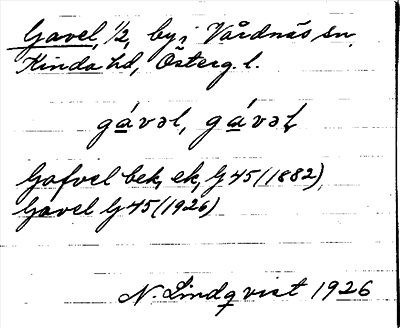 Gavel, 1/2, by i Vårdnäs sn,
Kinda hd, Österg. l.
gávəl, gávəł
Gafvel bek, ek, G 45 (1882)
Gavel G 45 (1926)
N. Lindqvist 1926